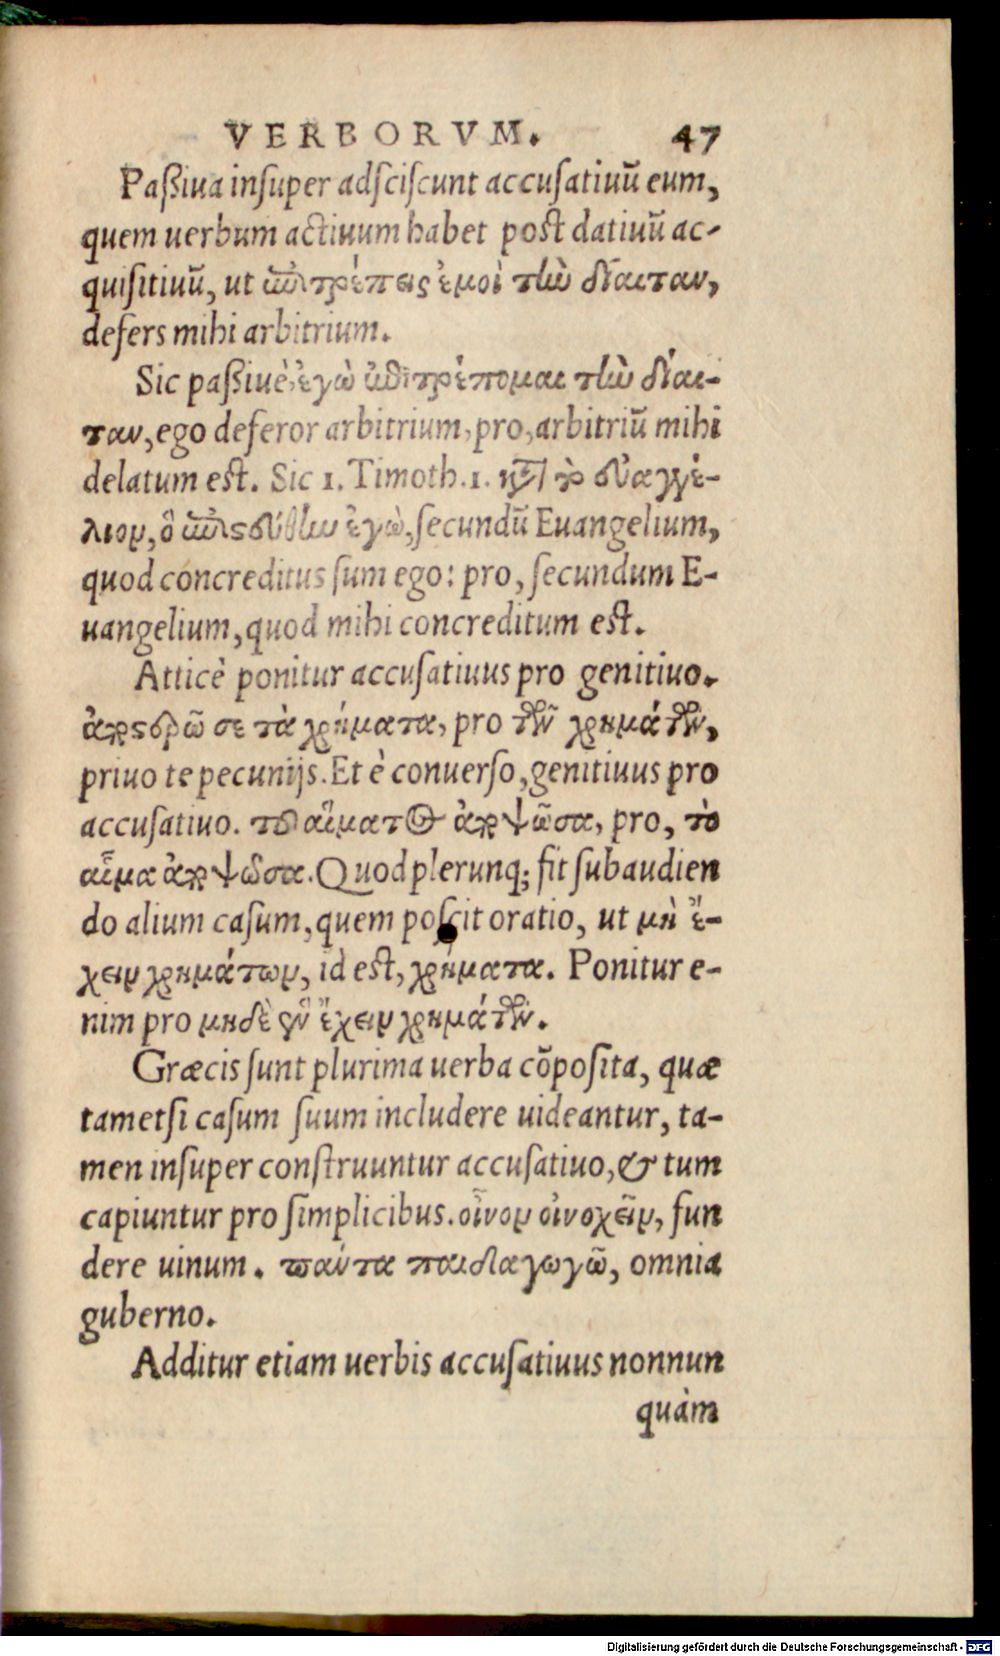 VERBORVM. 47
Paßiua insuper adsciscunt accusatiuũ eum,
quem uerbum actiuum habet post datiuũ ac-
quisitiuũ, ut ἐπιτρέπεις ἐμοὶ τὴν δίαιταν,
defers mihi arbitrium.
Sic paßiuè, ἐγὼ ἐπιτρέπομαι τὴν δίαι-
ταν, ego deferor arbitrium, pro, arbitriũ mihi
delatum est. Sic 1. Timoth. 1. κατὰ τὸ εὐαγγέ-
λιον, ὃ ἐπιστεύθην ἐγὼ, secundũ Euangelium,
quod concreditus sum ego: pro, secundum E-
uangelium, quod mihi concreditum est.
Atticè ponitur accusatiuus pro genitiuo.
ἀποστερῶ σε τὰ χρήματα, pro τῶν χρημάτων,
priuo te pecunijs. Et è conuerso, genitiuus pro
accusatiuo. τοῦ αἵματος ἀποψῶσα, pro, τὸ
αἷμα ἀποψῶσα. Quod plerunq; fit subaudien
do alium casum, quem poscit oratio, ut μὴ ἔ-
χειν χρημάτων, id est, χρήματα. Ponitur e-
nim pro μηδὲν ἔχειν χρημάτων.
Græcis sunt plurima uerba cõposita, quæ
tametsi casum suum includere uideantur, ta-
men insuper construuntur accusatiuo, & tum
capiuntur pro simplicibus. οἶνον οἰνοχεῖν, fun
dere uinum. πάντα παιδαγωγῶ, omnia
guberno.
Additur etiam uerbis accusatiuus nonnun
quàm
Digitalisierung gefördert durch die Deutsche Forschungsgemeinschaft - DFG